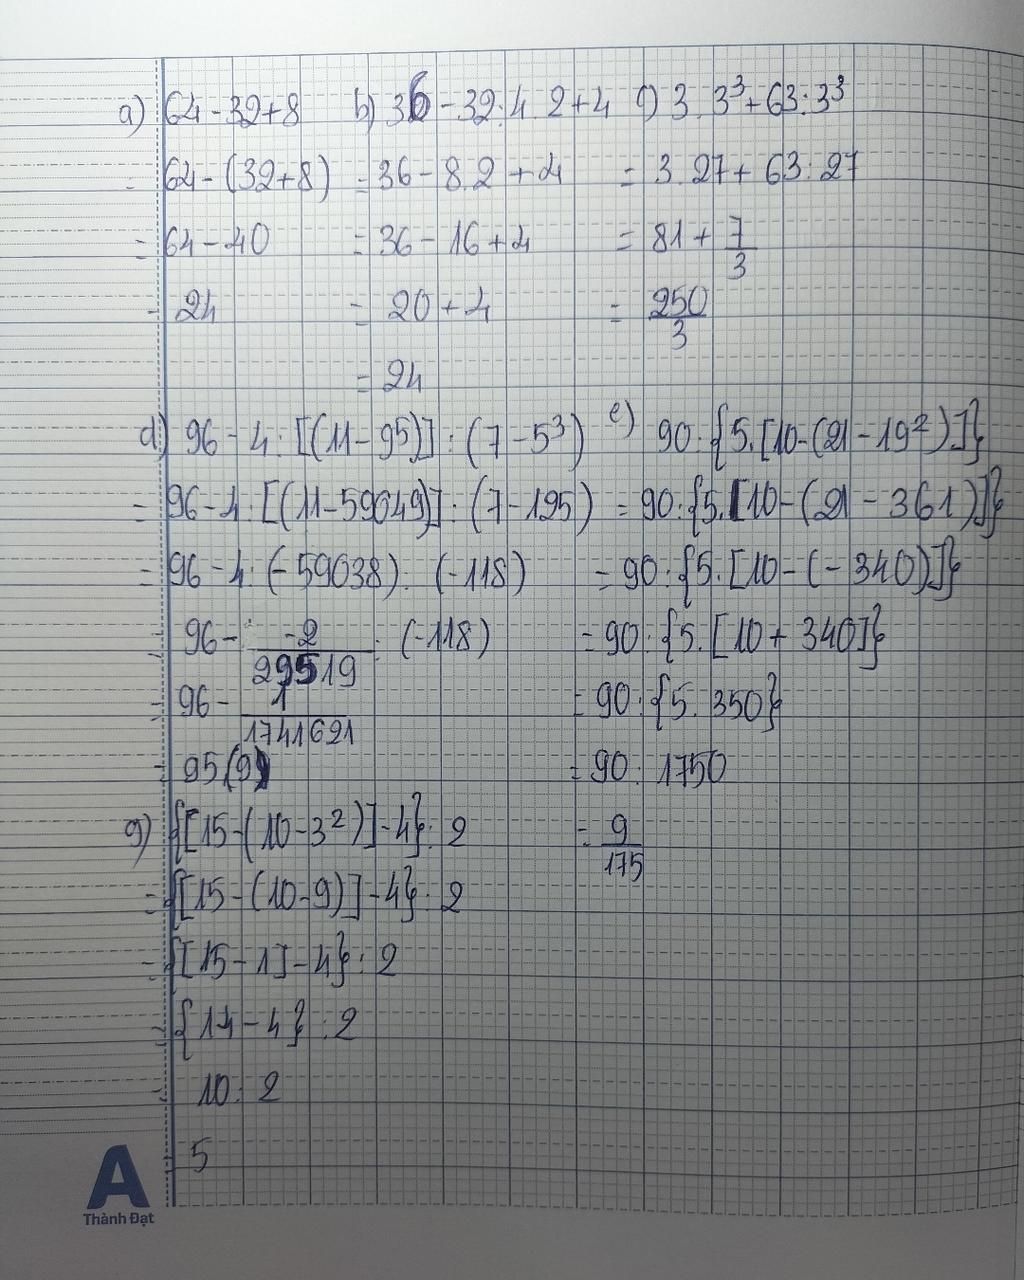 a) 64 - 32 + 8 b) 36 - 32 : 4 . 2 + 4 c) 3 . 3³ + 63 : 3³
= 64 - (32 + 8) = 36 - 8 . 2 + 4 = 3 . 27 + 63 : 27
= 64 - 40 = 36 - 16 + 4 = 81 + 7/3
= 24 = 20 + 4 = 250/3
= 24
d) 96 - 4 : [(11 - 9⁵)] : (7 - 5³) e) 90 : {5 . [10 - (21 - 19²)]}
= 96 - 4 : [(11 - 59049)] : (7 - 125) = 90 : {5 . [10 - (21 - 361)]}
= 96 - 4 : (-59038) : (-118) = 90 : {5 . [10 - (-340)]}
= 96 - -2/29519 : (-118) = 90 : {5 . [10 + 340]}
= 96 - 1/1741621 = 90 : {5 . 350}
= 95,(9) = 90 : 1750
g) {[15 - (10 - 3²)] - 4} : 2 = 9/175
= {[15 - (10 - 9)] - 4} : 2
= {[15 - 1] - 4} : 2
= {14 - 4} : 2
= 10 : 2
= 5
A
Thành Đạt